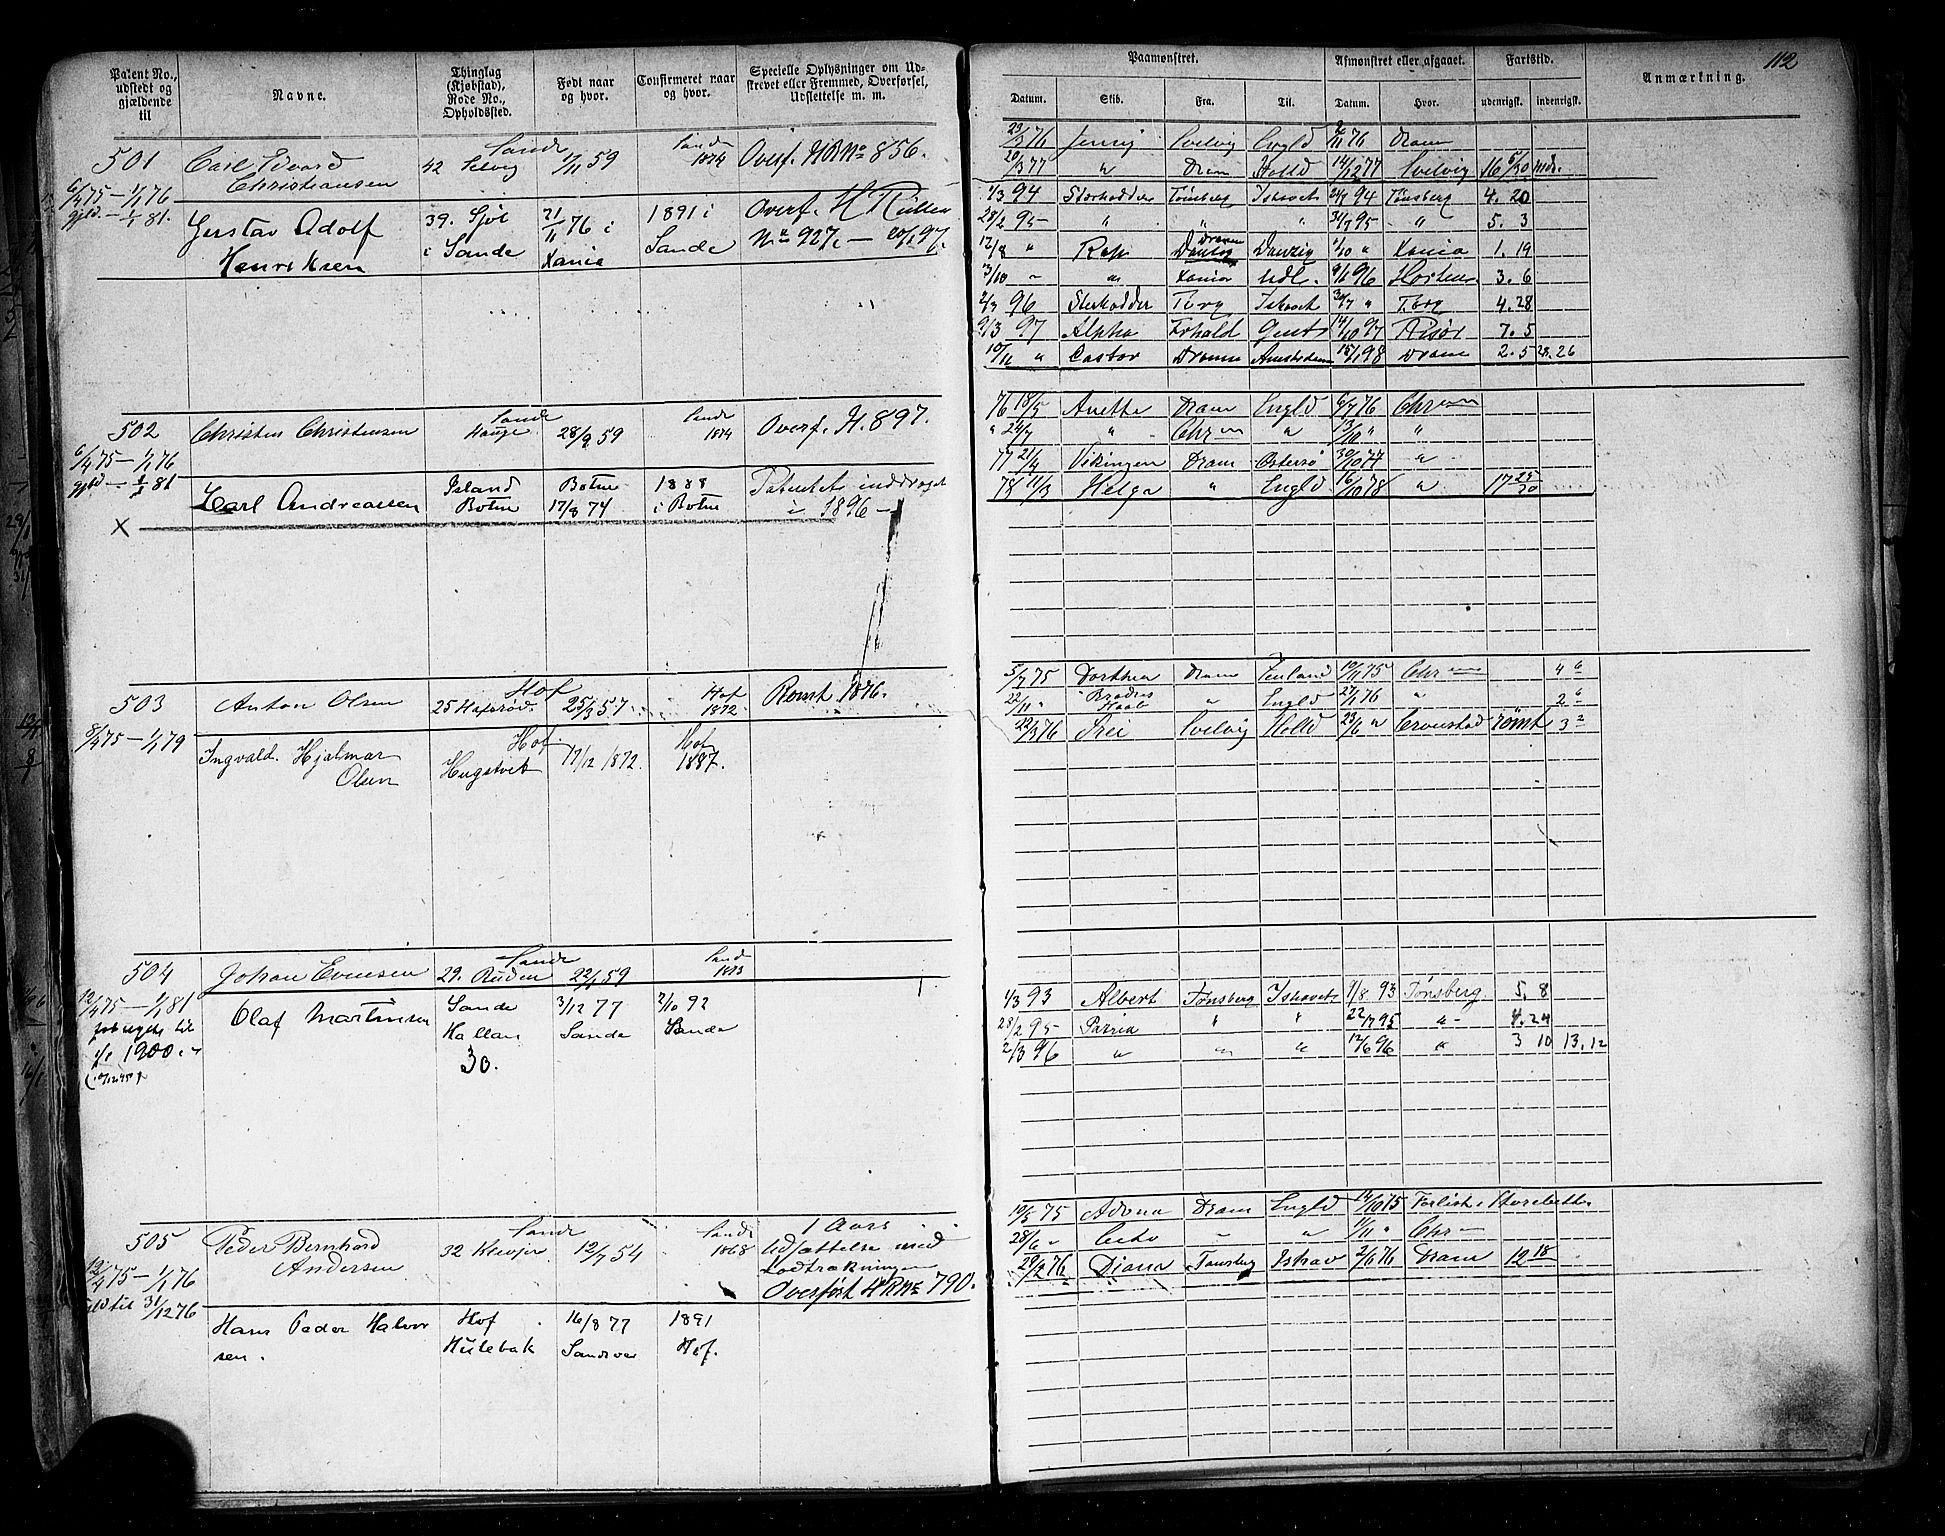 112
Patent No., udstedt og gjældende til
Navne.
Thinglag (Kjøbstad), Rode No., Opholdssted.
Født naar og hvor.
Confirmeret naar og hvor.
Specielle Oplysninger om Udskrevet eller Fremmed, Overførsel, Udslettelse m. m.
Paamønstret.
Afmønstret eller afgaaet.
Fartstid.
Anmærkning.
Datum. Skib. Fra. Til. Datum. Hvor. udenrigsk. indenrigsk.
501 Carl Edvard Christiansen 42 Sande Selvig 1/11 59 Sande 1874 Overf. HR No 856.
6/4 75 — 1/1 76
gjld. — 1/1 81.
Gustav Adolf Henriksen 39. Sjøl i Sande 21/11 76 i Xania 1891 i Sande Overf. H Rullen No 927. — 20/1 97.
23/3 76 Jenny Svelvig Engld 2/11 76 Dram
20/3 77 " Dram Holld 14/12 77 Svelvig 16 5/30 mdr.
1/3 94 Sterkodder Tønsberg Ishavet 24/8 94 Tønsberg 4. 20
28/2 95 " " " 31/7 95 " 5. 3
12/8 " Rap Drammen Danzig 1/10 " Xania 1. 19
13/10 " " Xania Udl. 9/1 96 Horten 3. 6
2/3 96 Sterkodder Tbrg Ishavet 30/7 " Tbrg 4. 28
9/3 97 Alpha Frhald Gent 14/10 97 Risør 7. 5
10/11 " Castor Dramm Amsterdam 15/1 98 Dram 2. 5 23. 26
502 Christen Christensen Sande Hauge 28/9 59 Sande 1874 Overf. H. 897.
6/4 75 — 1/1 76
gjld — 1/1 81
Carl Andreassen Island Botne Botne 17/8 74 1888 i Botne Patentet inddraget i 1896 —
X
76 18/5 Anette Dram Engld 6/7 76 Chr
" 24/7 " Chr " 13/10 " "
77 21/4 Vikingen Dram Østersø 30/10 77 "
78 11/3 Helga " Engld 16/10 78 " 17 25/30
503 Anton Olsen 25 Hof Hafsrød 25/3 57 Hof 1872 Rømt 1876.
8/4 75 — 1/1 79
Ingvald Hjalmar Olsen Hof Hugstvet 17/12 1872. Hof 1887.
5/7 75 Dorthea Dram Fenland 10/11 75 Chr 4 6
22/11 " Brødres Haab " Engld 27/1 76 " 2 6
22/3 76 Frei Svelvig Holld 23/6 " Cronstad rømt 3 2
504 Johan Evensen 29. Sande Ruden 22/1 59 Sande 1873
12/4 75 — 1/1 81
forlenget til
1/1 1900
Olaf Martinsen Sande Hallan 30. 3/12 77 Sande 2/10 92 Sande
1/3 93 Albert Tønsberg Ishavet 7/8 93 Tønsberg. 5. 8
28/2 95 " " 22/7 95 " 4. 24
2/3 96 " " " 12/6 96 " 3 10 13. 12
505 Peder Bernhard Andersen 32 Sande Klevjer 12/7 54 Sande 1868 1 Aars Udsættelse med Lodtrækningen Overført HR No 790.
12/4 75 — 1/1 76
Gld til 31/12 76
Hans Peder Halvorsen. Hof Hulebak 16/8 77 1891 Hof.
10/5 75 Adona Dram Engld 14/10 75 Forlist
28/6 " " " 1/11 " Chr
29/2 76 Diana Tønsberg Ishav 2/6 76 Dram 12 18